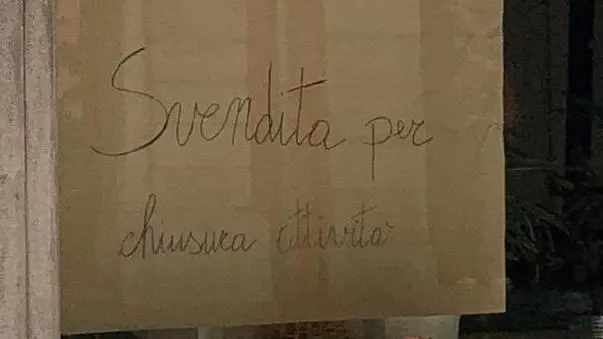 Svendita per
chiusura attività